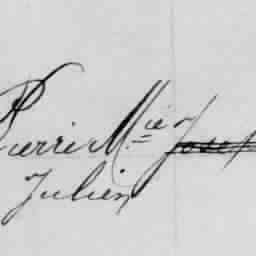 Pierre M.ie Joseph
Julien